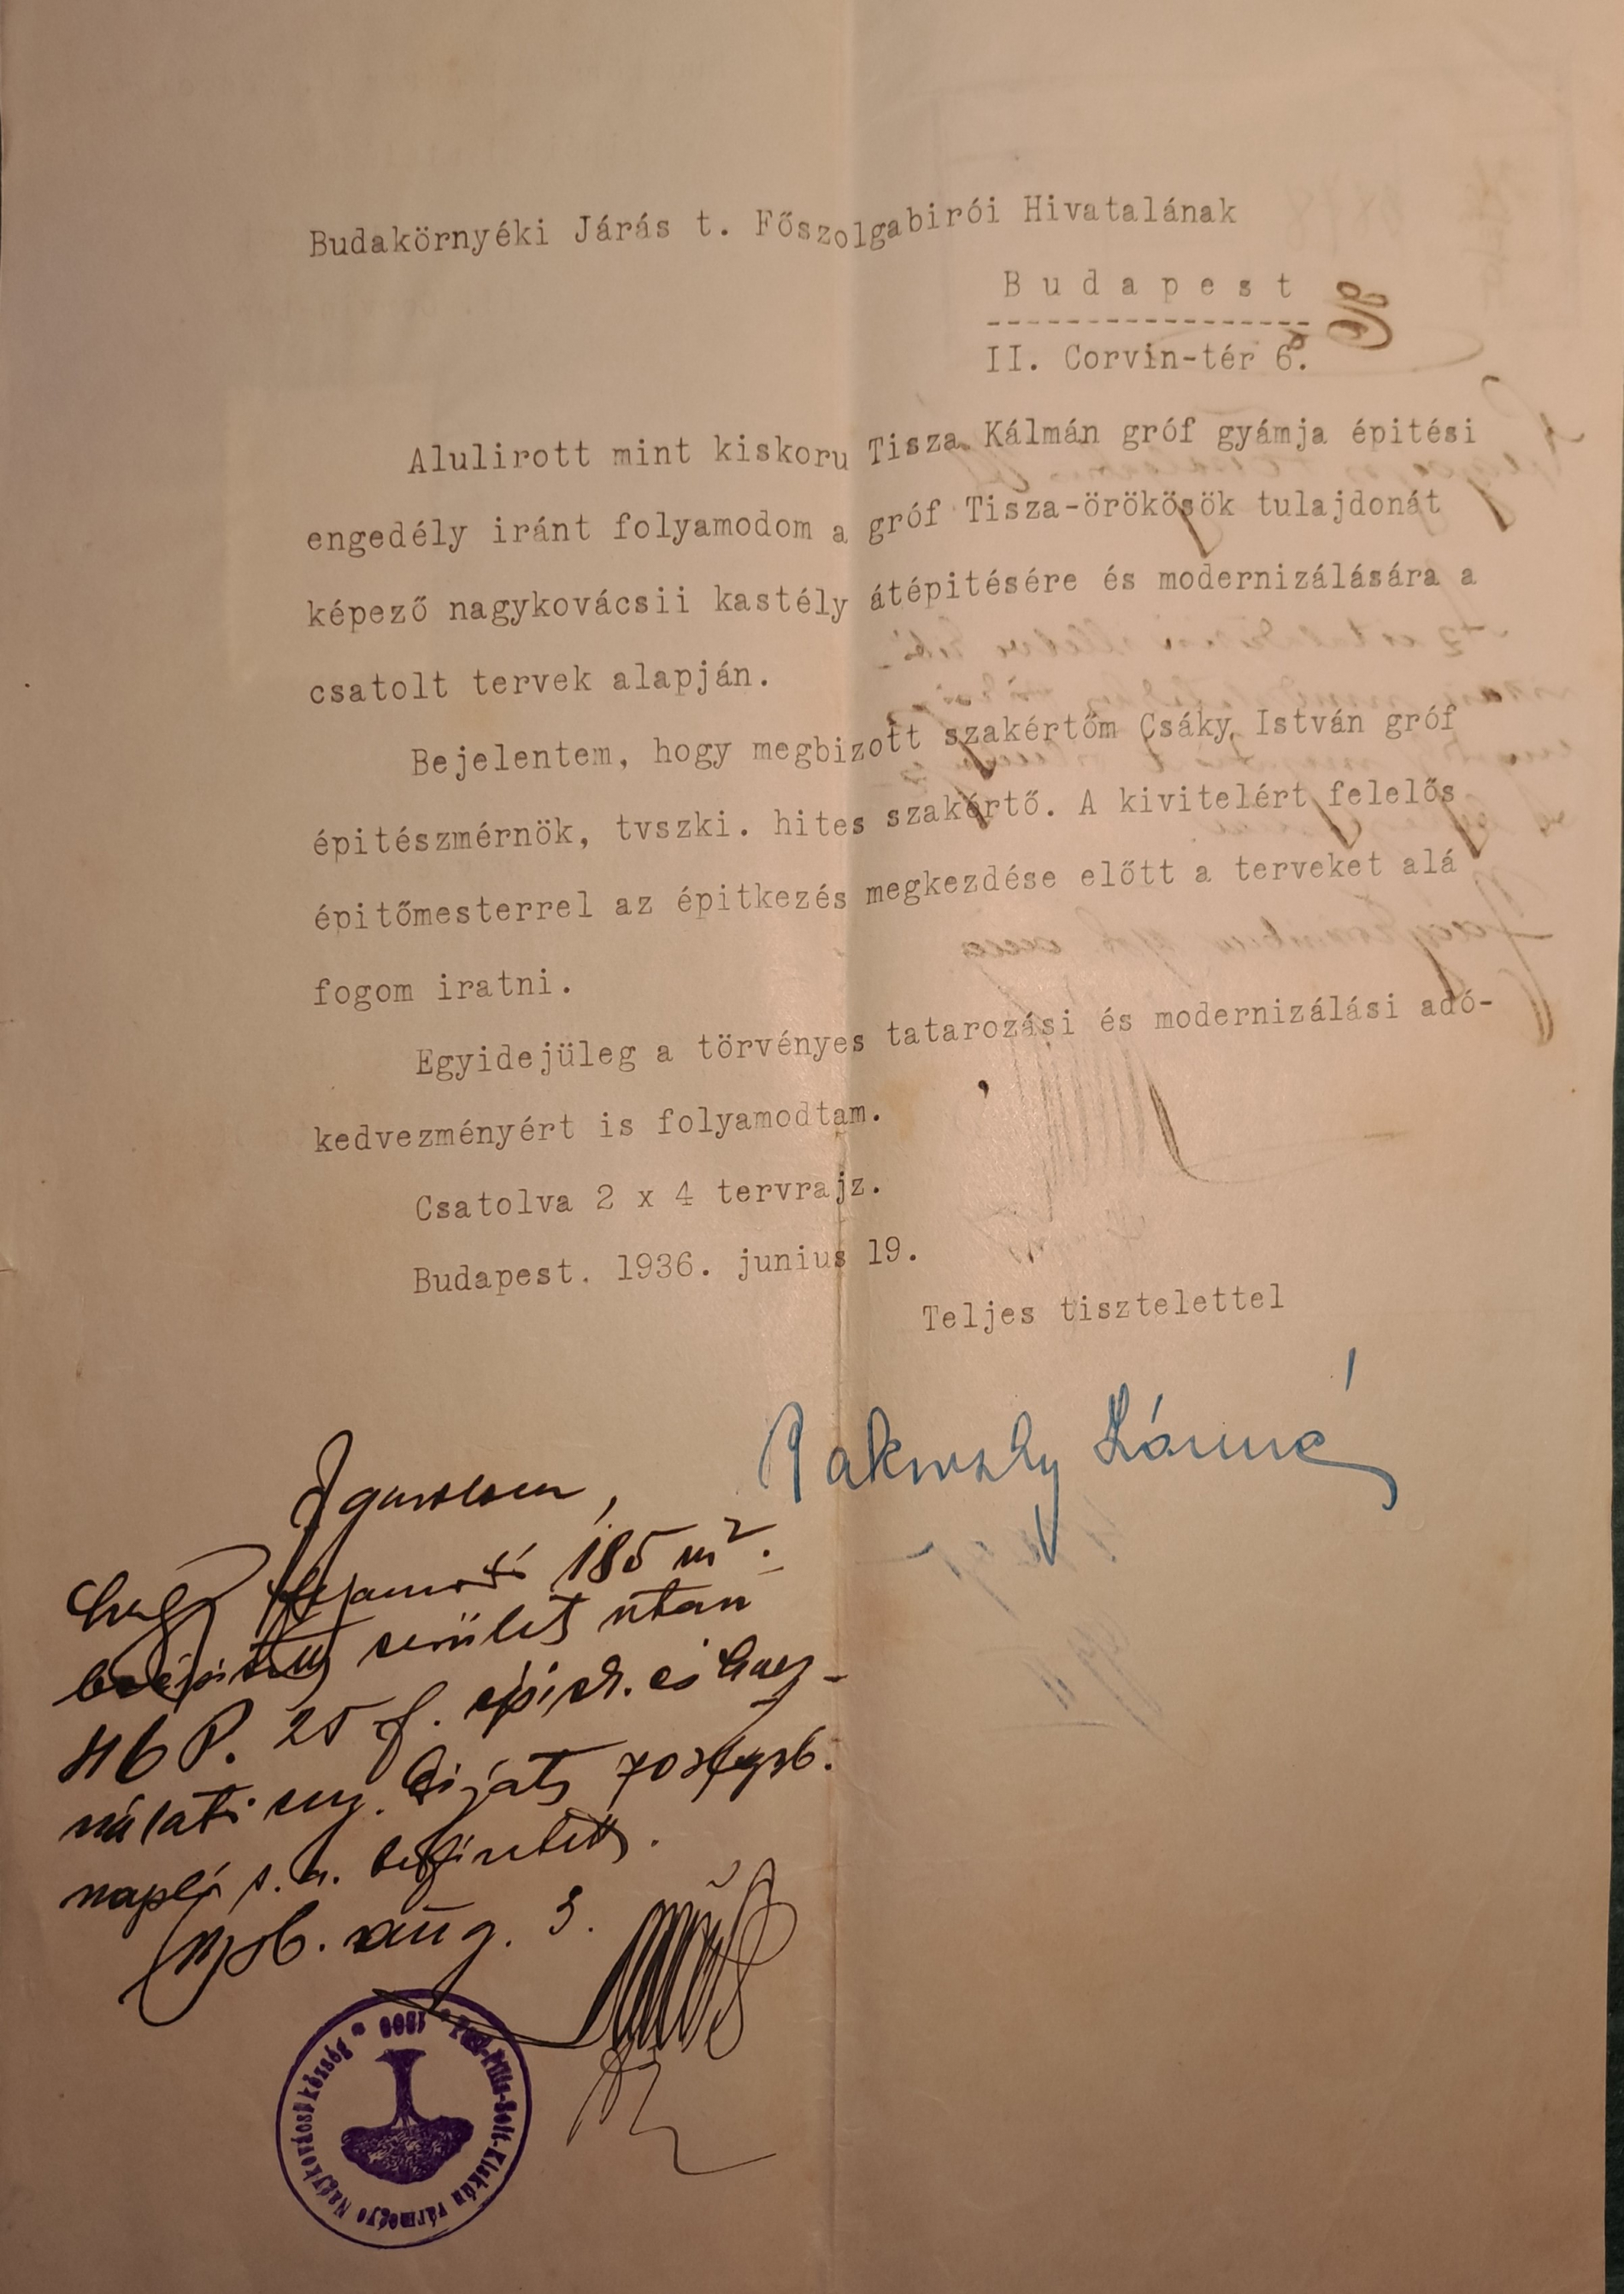 Budakörnyéki Járás t. Főszolgabirói Hivatalának
Budapest
II. Corvin-tér 6.
Alulirott mint kiskoru Tisza Kálmán gróf gyámja épitési
engedély iránt folyamodom a gróf Tisza-örökösök tulajdonát
képező nagykovácsii kastély átépitésére és modernizálására a
csatolt tervek alapján.
Bejelentem, hogy megbizott szakértőm Csáky István gróf
épitészmérnök, tvszki. hites szakértő. A kivitelért felelős
épitőmesterrel az épitkezés megkezdése előtt a terveket alá
fogom iratni.
Egyidejüleg a törvényes tatarozási és modernizálási adó-
kedvezményért is folyamodtam.
Csatolva 2 x 4 tervrajz.
Budapest. 1936. junius 19.
Teljes tisztelettel
Igazolom,
hogy folyamodó 185 m².
beépitett terület után
46 P. 25 f. épit. és hasz-
nálati eng. dijat
napló s. a. befizetett.
aug. 3.
Pest-Pilis-Solt-Kiskún vármegye Nagykovácsi község